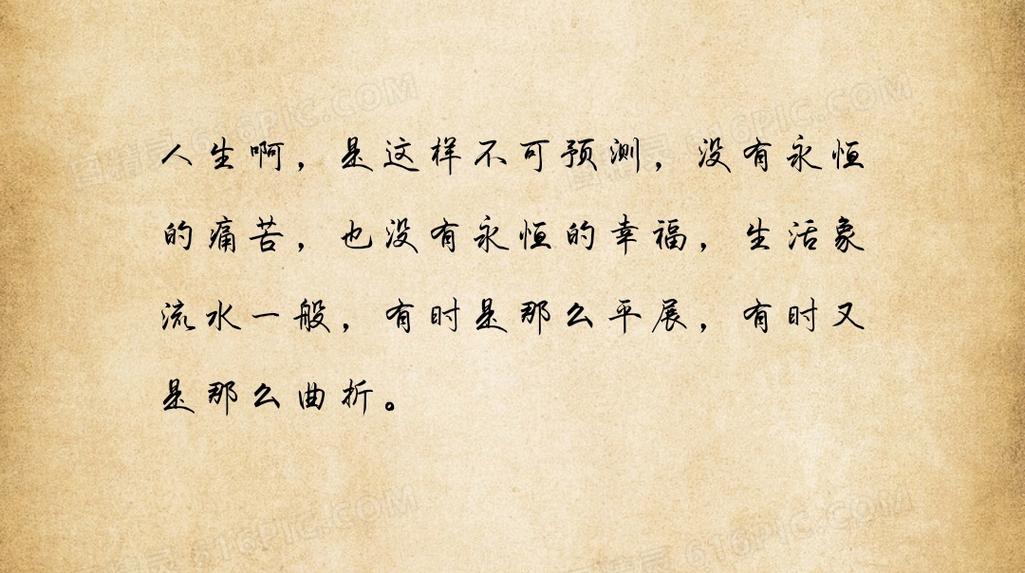 人生啊，是这样不可预测，没有永恒
的痛苦，也没有永恒的幸福，生活象
流水一般，有时是那么平展，有时又
是那么曲折。
616PIC.COM
616PIC.COM
616PIC.COM
616PIC.COM